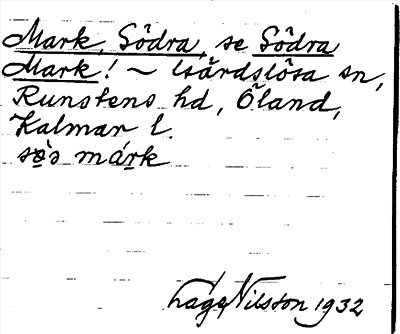 Mark, Södra, se Södra
Mark! ~ Gärdslösa sn,
Runstens hd, Öland,
Kalmar l.
sø̀s márk
Lage Nilsson 1932